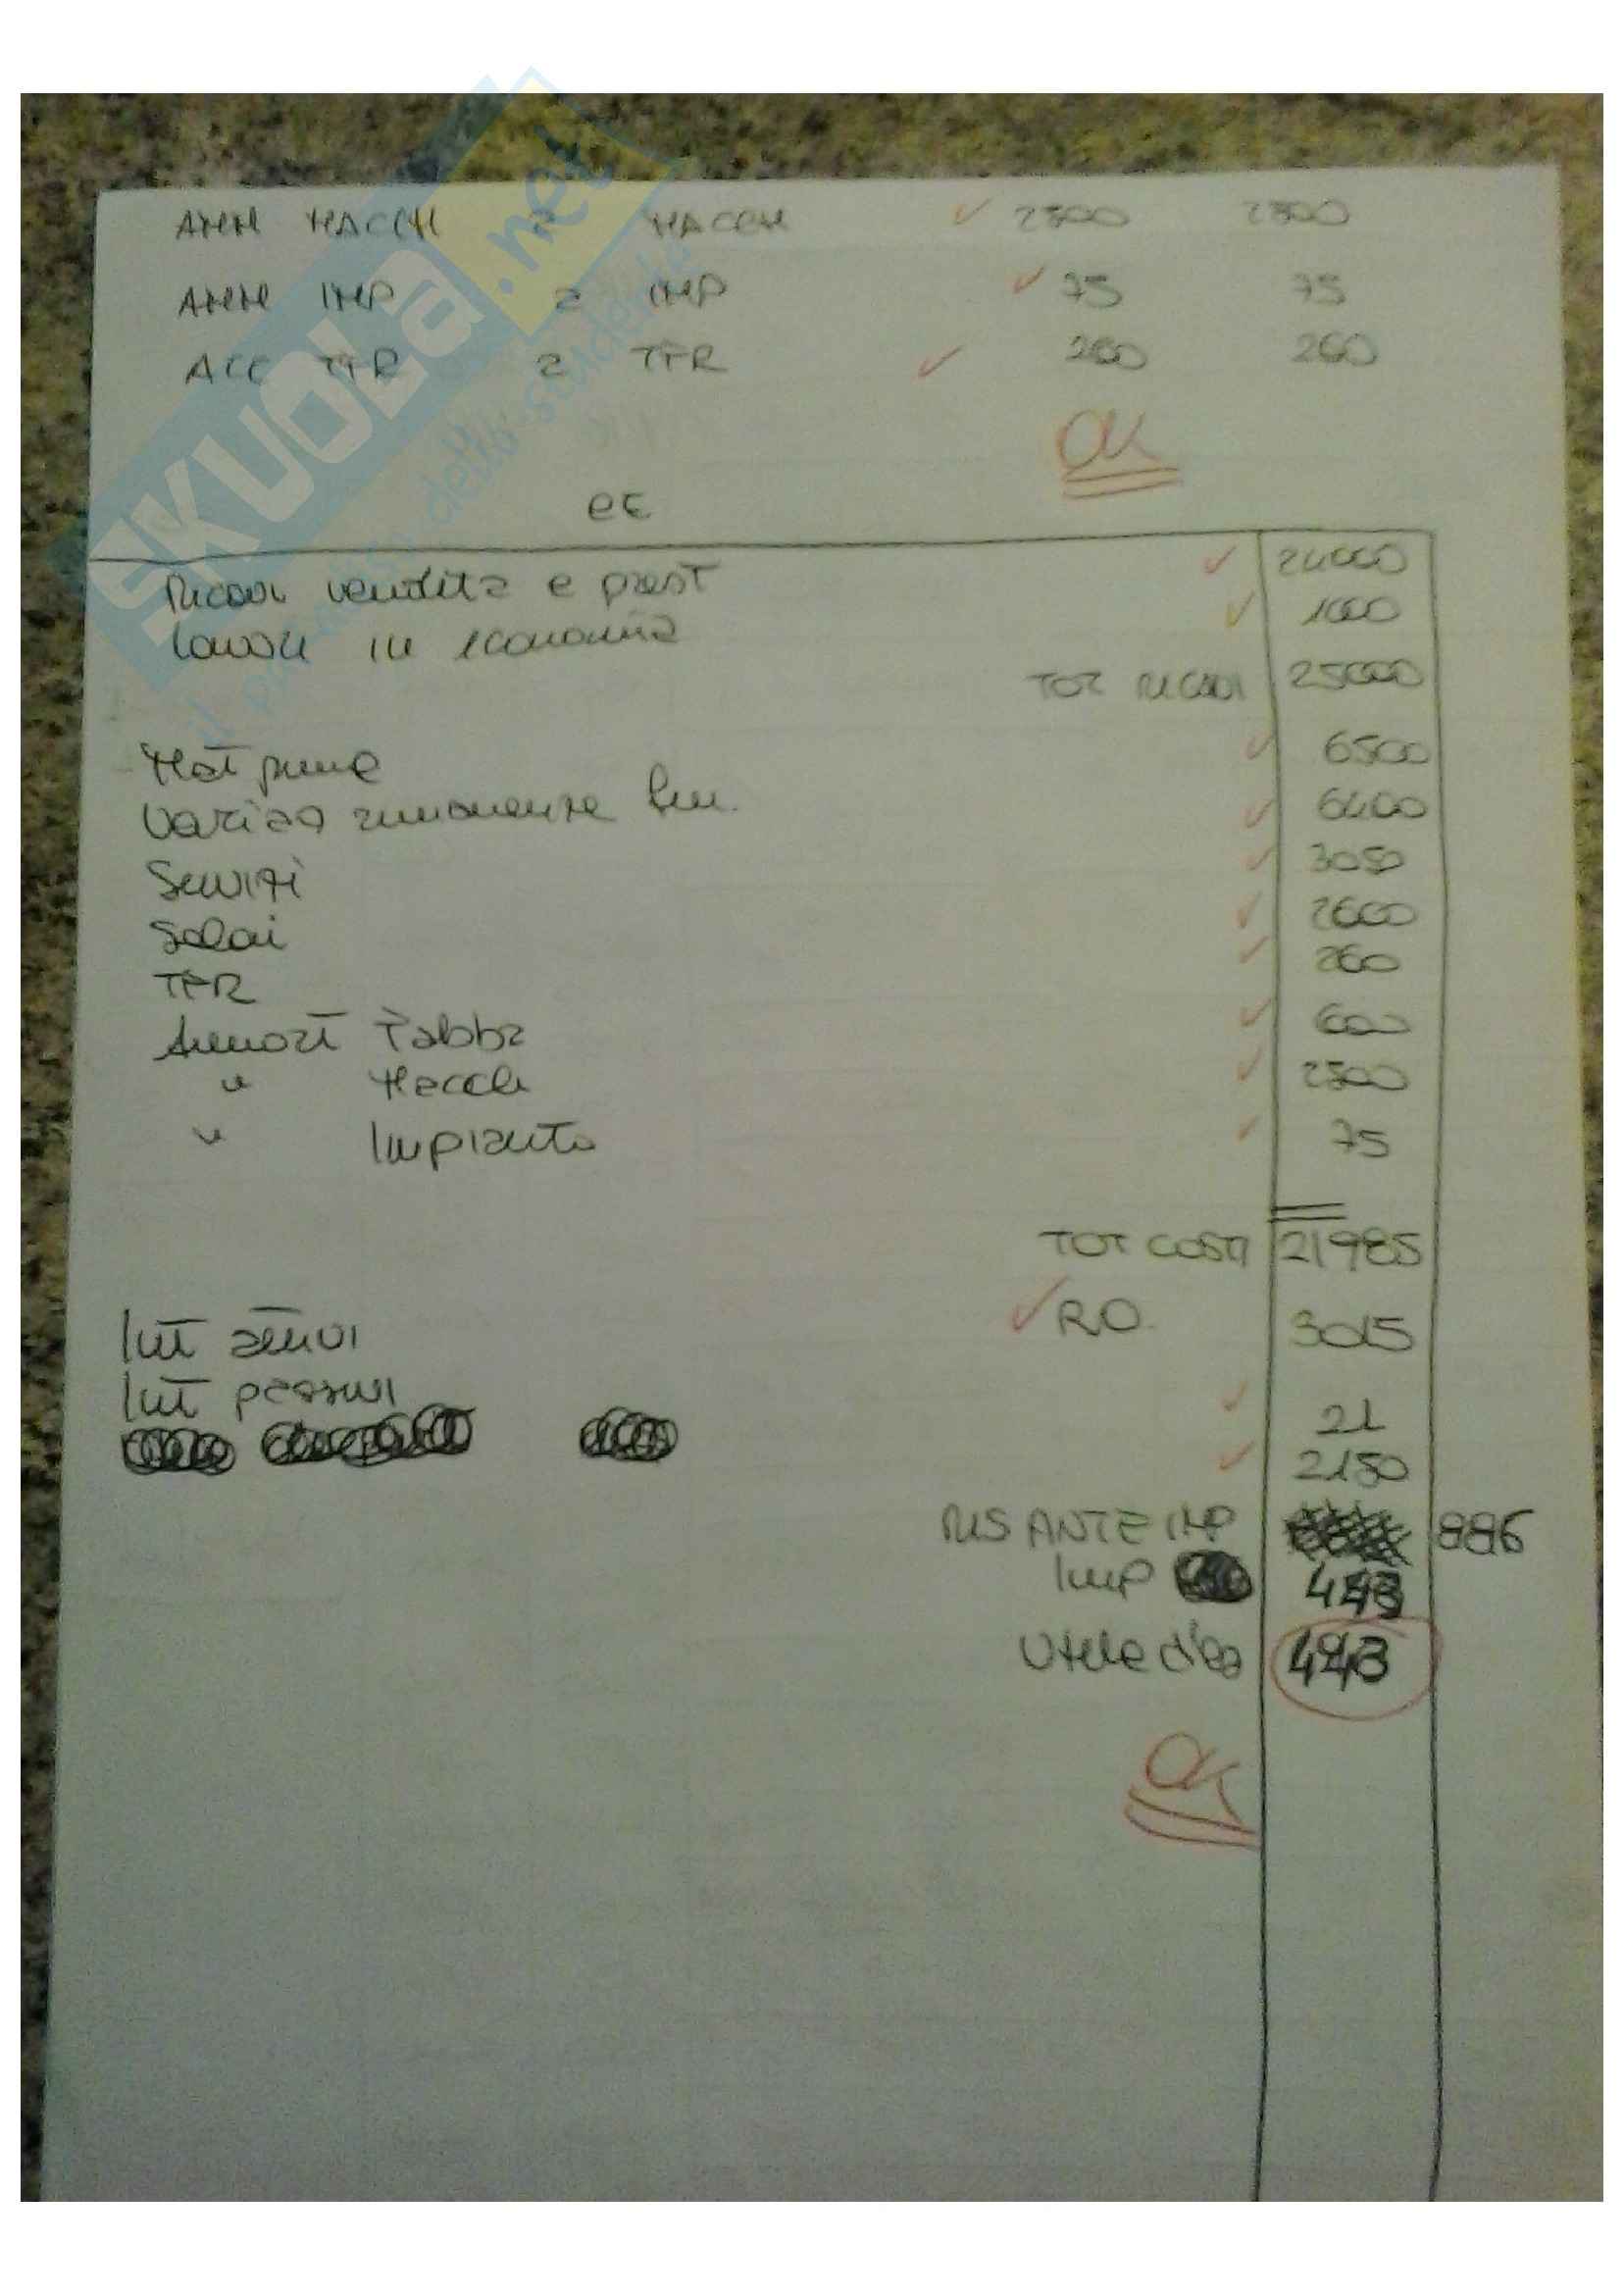 AMM MACCH a MACCH 2500 2500
AMM IMP a IMP 75 75
ACC TFR a TFR 260 260
OK
CE
Ricavi vendita e prest 24000
Lavori in economia 1000
TOT RICAVI 25000
Mat prime 6500
Variaz rimanenze fin. 6400
Servizi 3050
Salari 2600
TFR 260
Ammort Fabbr 600
" Macch 2500
" Impianto 75
TOT COSTI 21985
RO 3015
Int attivi 21
Int passivi 2150
RIS ANTE IMP 886
Imp 443
Utile d'es 443
OK
SKUOLa.net